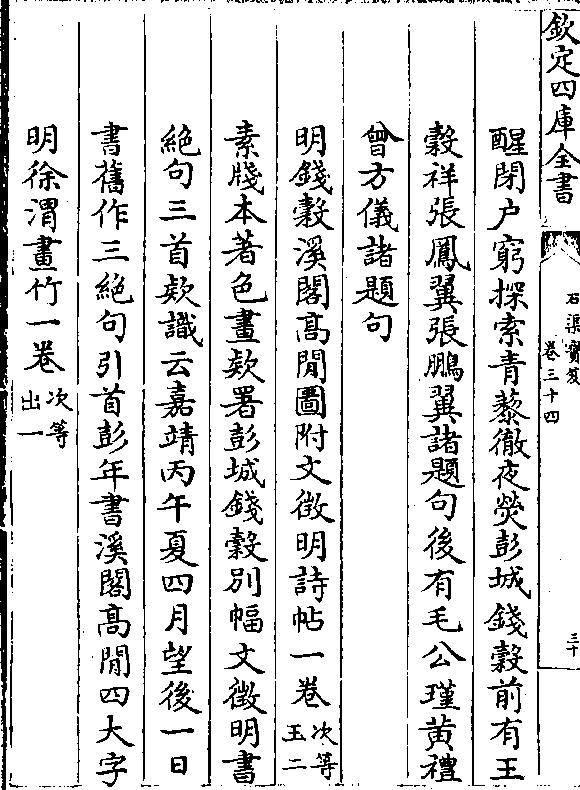 欽定四庫全書
石渠寶笈
卷三十四
三十
醒閉户窮探索青藜徹夜熒彭城錢榖前有王
榖祥張鳳翼張鵬翼諸題句後有毛公瑾黄禮
曾方儀諸題句
明錢榖溪閣高閒圖附文徵明詩帖一卷次等玉二
素牋本著色畫欵署彭城錢榖别幅文徵明書
絶句三首欵識云嘉靖丙午夏四月望後一日
書舊作三絶句引首彭年書溪閣高閒四大字
明徐渭畫竹一卷次等出一